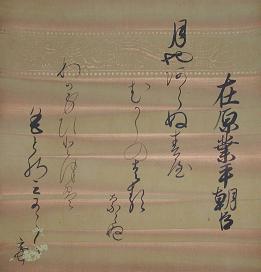 在原業平朝臣
月やあらぬ春や
むかしの春
ならぬ
わか身ひとつは
もとの身にし